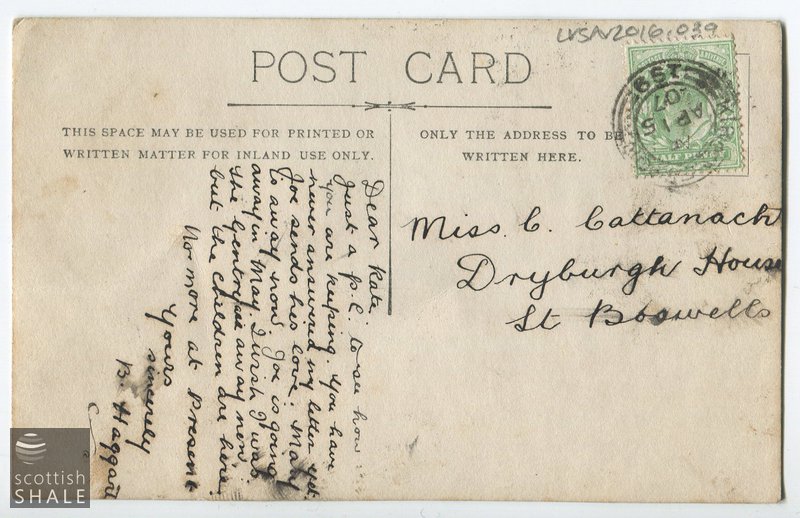 LVSAV2016.039
POST CARD
THIS SPACE MAY BE USED FOR PRINTED OR
WRITTEN MATTER FOR INLAND USE ONLY.
ONLY THE ADDRESS TO BE
WRITTEN HERE.
6 ST
AP 15
07
HALF PENNY
Miss. C. Cattanach
Dryburgh House
St Boswells
Dear Kate.
Just a p.c. to see how
you are keeping. You have
never answered my letter yet.
Joe sends his love. Mary
is away now. Joe is going
away in May. I wish I was.
the Gentry is away now.
but the children are here.
No more at Present
Yours
sincerely
B. Haggart
scottish
SHALE